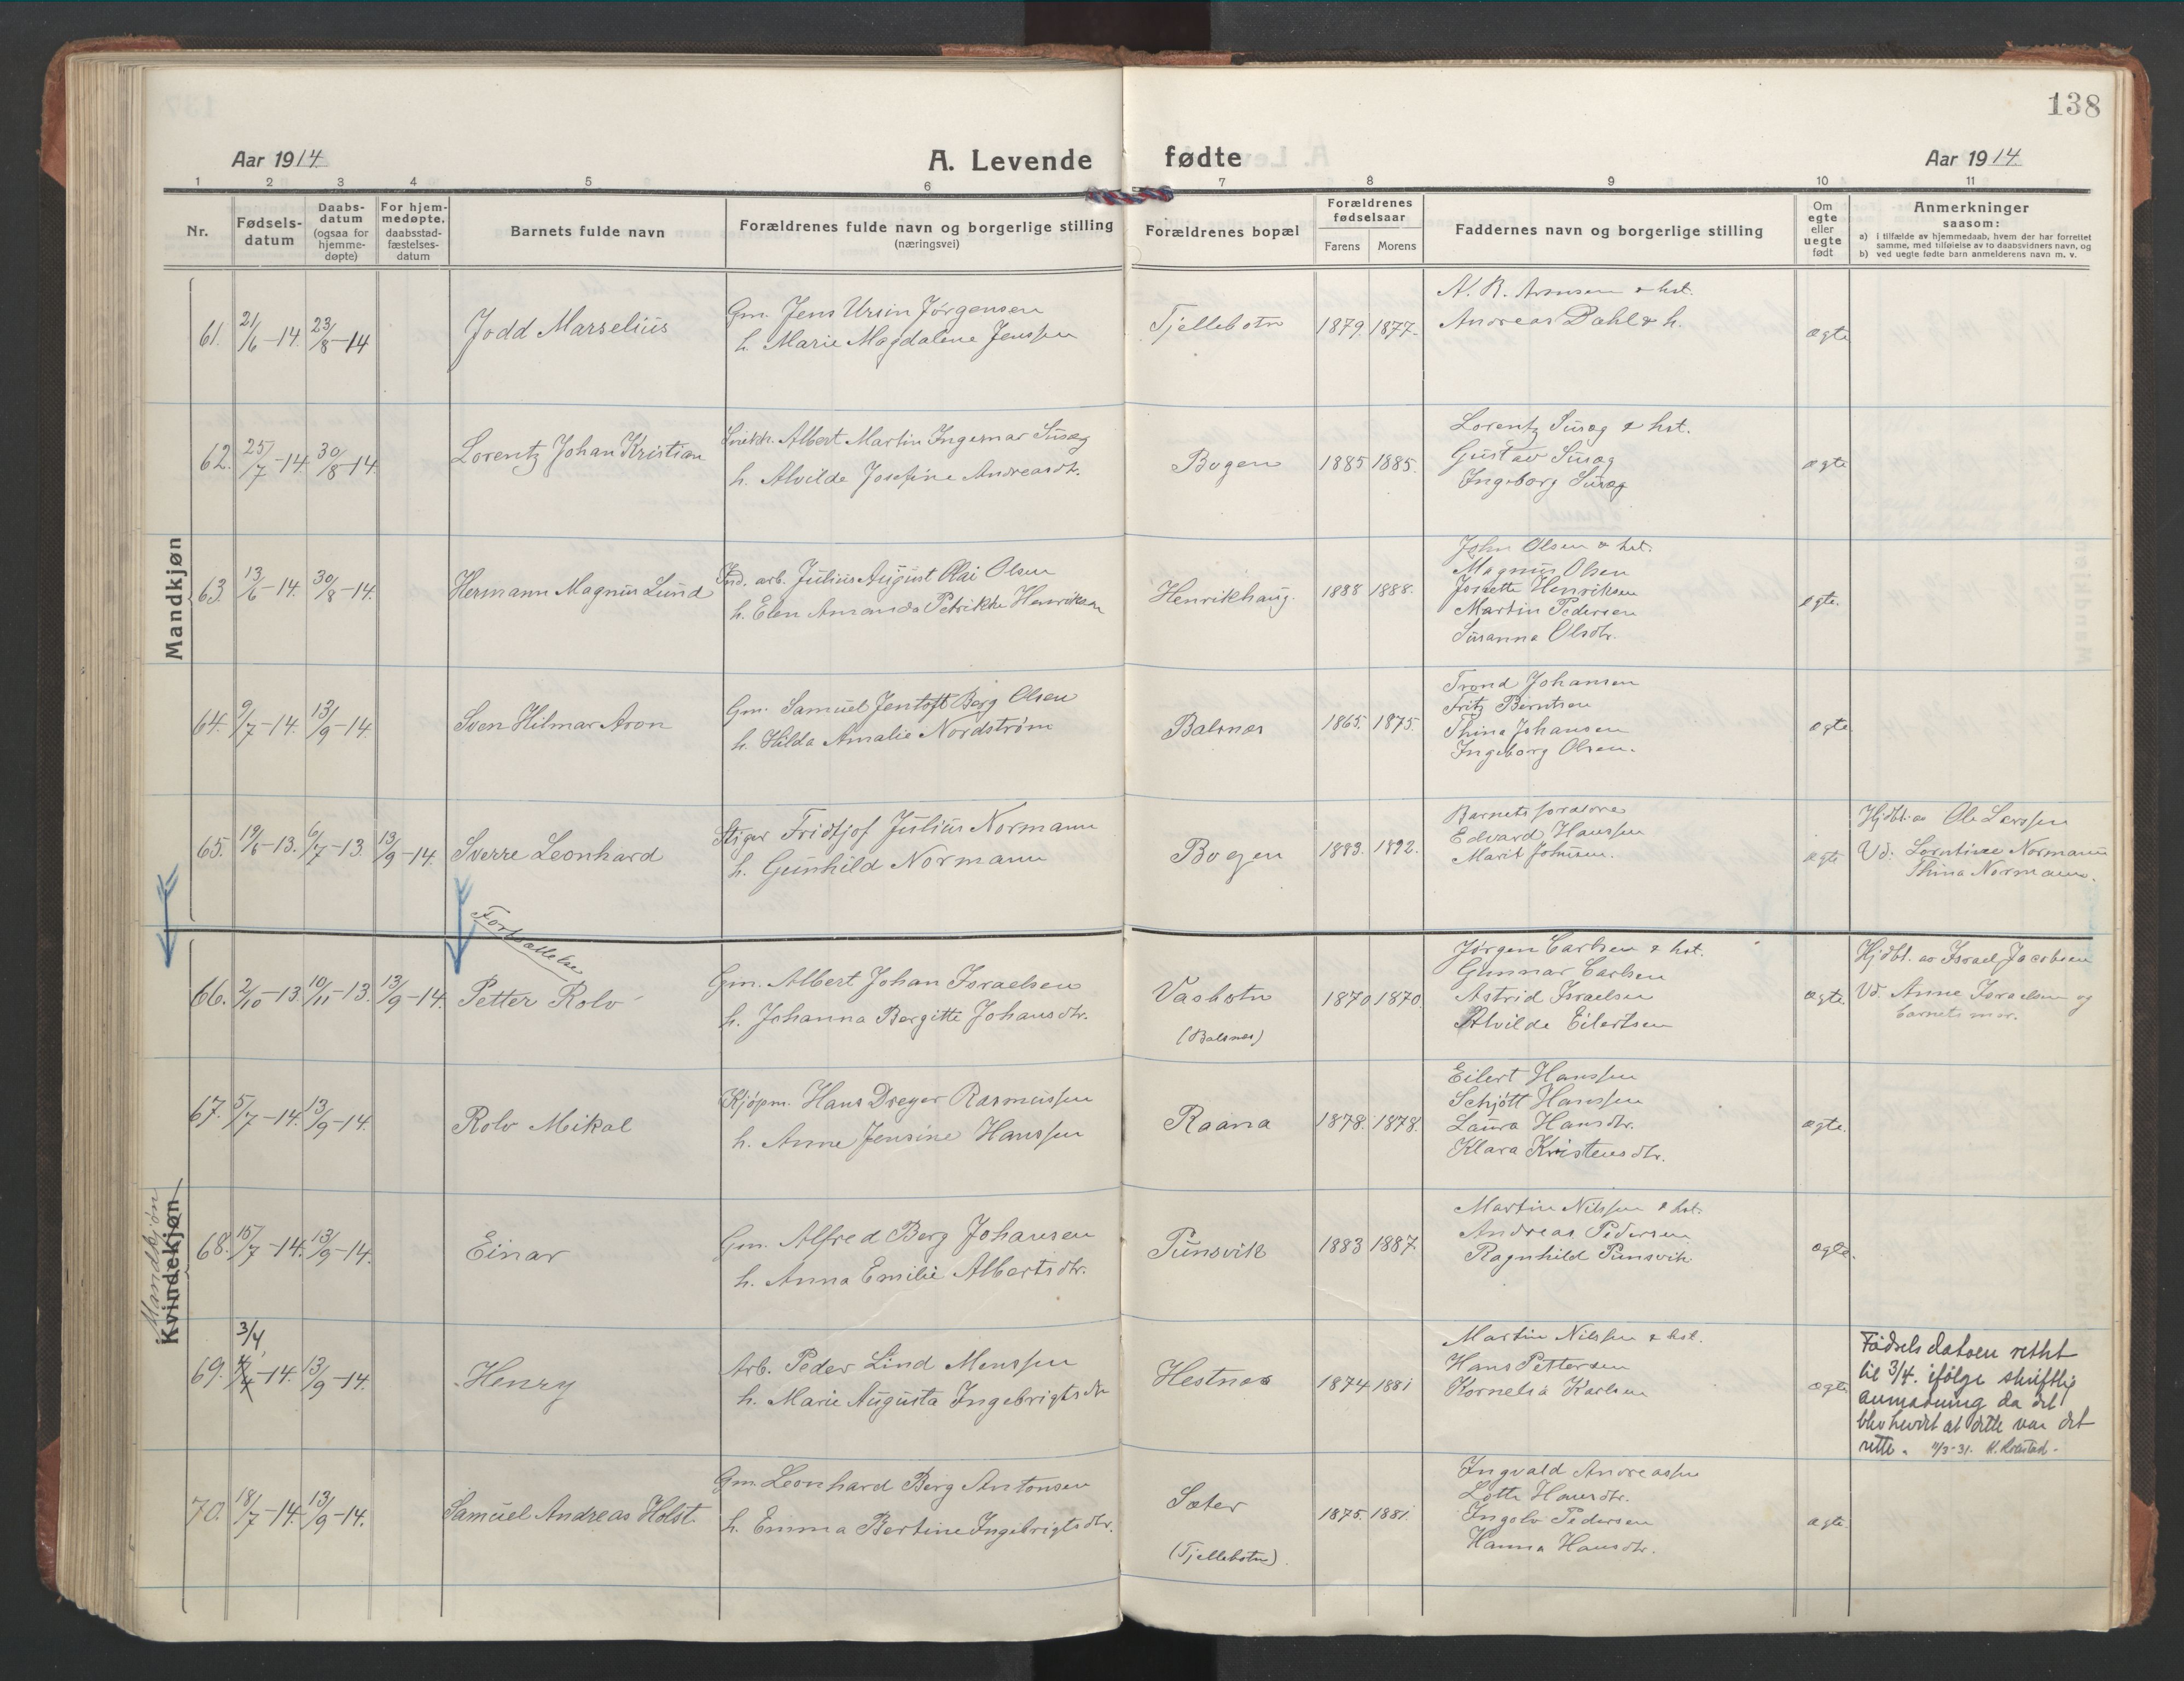 138
Aar 1914.
A. Levende fødte
Aar 1914
1 2 3 4 5 6 7 8 9 10 11
Nr.
Fødsels-
datum
Daabs-
datum
(ogsaa for
hjemme-
døpte)
For hjem-
medøpte,
daabsstad-
fæstelses-
datum
Barnets fulde navn
Forældrenes fulde navn og borgerlige stilling
(næringsvei)
Forældrenes bopæl
Forældrenes
fødselsaar
Farens Morens
Faddernes navn og borgerlige stilling
Om
egte
eller
uegte
født
Anmerkninger
saasom:
a) i tilfælde av hjemmedaab, hvem der har forrettet
samme, med tilføielse av to daabsvidners navn, og
b) ved uegte fødte barn anmelderens navn m. v.
Mandkjøn
61. 21/6-14. 23/8-14
Jodd Marselius
Gm. Jens Ursin Jørgensen
h. Marie Magdalene Jenssen
Tjellebotn
1879. 1877.
A. R. Arnesen & hst.
Andreas Dahl & h.
ægte
62. 25/7-14. 30/8-14.
Lorentz Johan Kristian
Albert Martin Ingemar Susæg
h. Alvilde Josefine Andreasdtr.
Bogen
1885 1885.
Lorentz Susæg & hst.
Gustav Susæg
Ingeborg Susæg
ægte
63. 13/6-14. 30/8-14.
Hermann Magnus Lund
Ind. arb. Julius August Olai Olsen
h. Elen Amanda Petrikke Henriksen
Henrikhaug.
1888 1888.
John Olsen & hst.
Magnus Olsen
Josette Henriksen
Martin Pedersen
Susanna Olsdtr.
egte.
64. 9/7-14. 13/9-14.
Sven Hilmar Aron
Gm. Samuel Jentoft Berg Olsen
h. Hilda Amalie Nordstrøm
Balsnes
1865. 1875.
Trond Johansen
Fritz Berntsen
Thina Johansen
Ingeborg Olsen.
ægte
65. 19/6-13. 6/7-13. 13/9-14.
Sverre Leonhard
Stiger Fridtjof Julius Normann
h. Gunhild Normann
Bogen
1883. 1892.
Barnets foreldre
Edvard Hanssen
Marit Johnsen.
ægte
Hjdbt. av Ole Larssen
Vd. Lorntine Normann
Thina Normann.
Fortsættelse
Mandkjøn
Kvindekjøn
66. 2/10-13. 10/11-13. 13/9-14.
Petter Rolv
Gm. Albert Johan Israelsen
h. Johanna Bergitte Johansdtr.
Vasbotn
(Balsnes)
1870 1870.
Jørgen Carlsen & hst.
Gunnar Carlsen
Astrid Israelsen
Alvilde Eilertsen
ægte.
Hjdbt. av Israel Jacobsen
Vd. Anne Israelsen og
barnets mor.
67. 5/7-14. 13/9-14.
Rolv Mikal
Kjøpm. Hans Dreyer Rasmussen
h. Anne Jensine Hanssen
Raana
1878. 1878.
Eilert Hanssen
Schjøtt Hanssen
Laura Hansdtr.
Klara Kristensdtr.
ægte.
68. 15/7-14. 13/9-14.
Einar
Gm. Alfred Berg Johansen
h. Anna Emilie Albertsdtr.
Punsvik
1883 1887.
Martin Nilssen & hst.
Andreas Pedersen
Ragnhild Punsvik
ægte.
3/4
69. 4/4-14. 13/9-14.
Henry
Arb. Peder Lind Monssen
h. Marie Augusta Ingebrigtsdtr
Hestnes
1874 1881
Martin Nilssen & hst.
Hans Pettersen
Kornelia Karlsen
ægte
Fødselsdatoen rettet
til 3/4. ifölge skriftlig
anmodning da det
blev hevdet at dette var det
rette. 11/3-31.
70. 18/7-14. 13/9-14.
Samuel Andreas Holst.
Gm. Leonhard Berg Antonsen
h. Emma Bertine Ingebrigtsdtr.
Sæter
(Tjellebotn).
1875. 1881.
Ingvald Andreassen
Lotte Hansdtr.
Ingolv Pedersen
Hanna Hansdtr.
ægte.